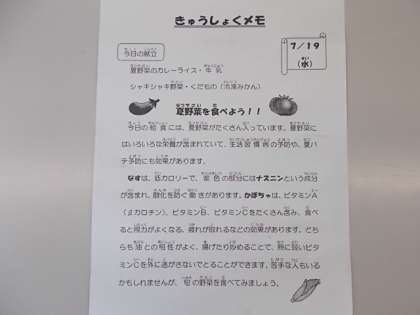 きゅうしょくメモ
7/19
(水)
今日の献立
夏野菜のカレーライス・牛乳
シャキシャキ野菜・くだもの（冷凍みかん）
夏野菜を食べよう！！
今日の給食には、夏野菜がたくさん入っています。夏野菜に
はいろいろな栄養が含まれていて、生活習慣病の予防や、夏バ
テ予防にも効果があります。
なすは、低カロリーで、紫色の成分にはナスニンという成分
が含まれ、酸化を防ぐ働きがあります。かぼちゃは、ビタミンA
（βカロチン）、ビタミンB、ビタミンCをたくさん含み、食べ
ると視力がよくなる、疲れが取れるなどの効果があります。どち
らも油との相性がよく、揚げたり炒めることで、熱に弱いビタ
ミンCを外に逃がさないでとることができます。苦手な人もいる
かもしれませんが、旬の野菜を食べてみましょう。